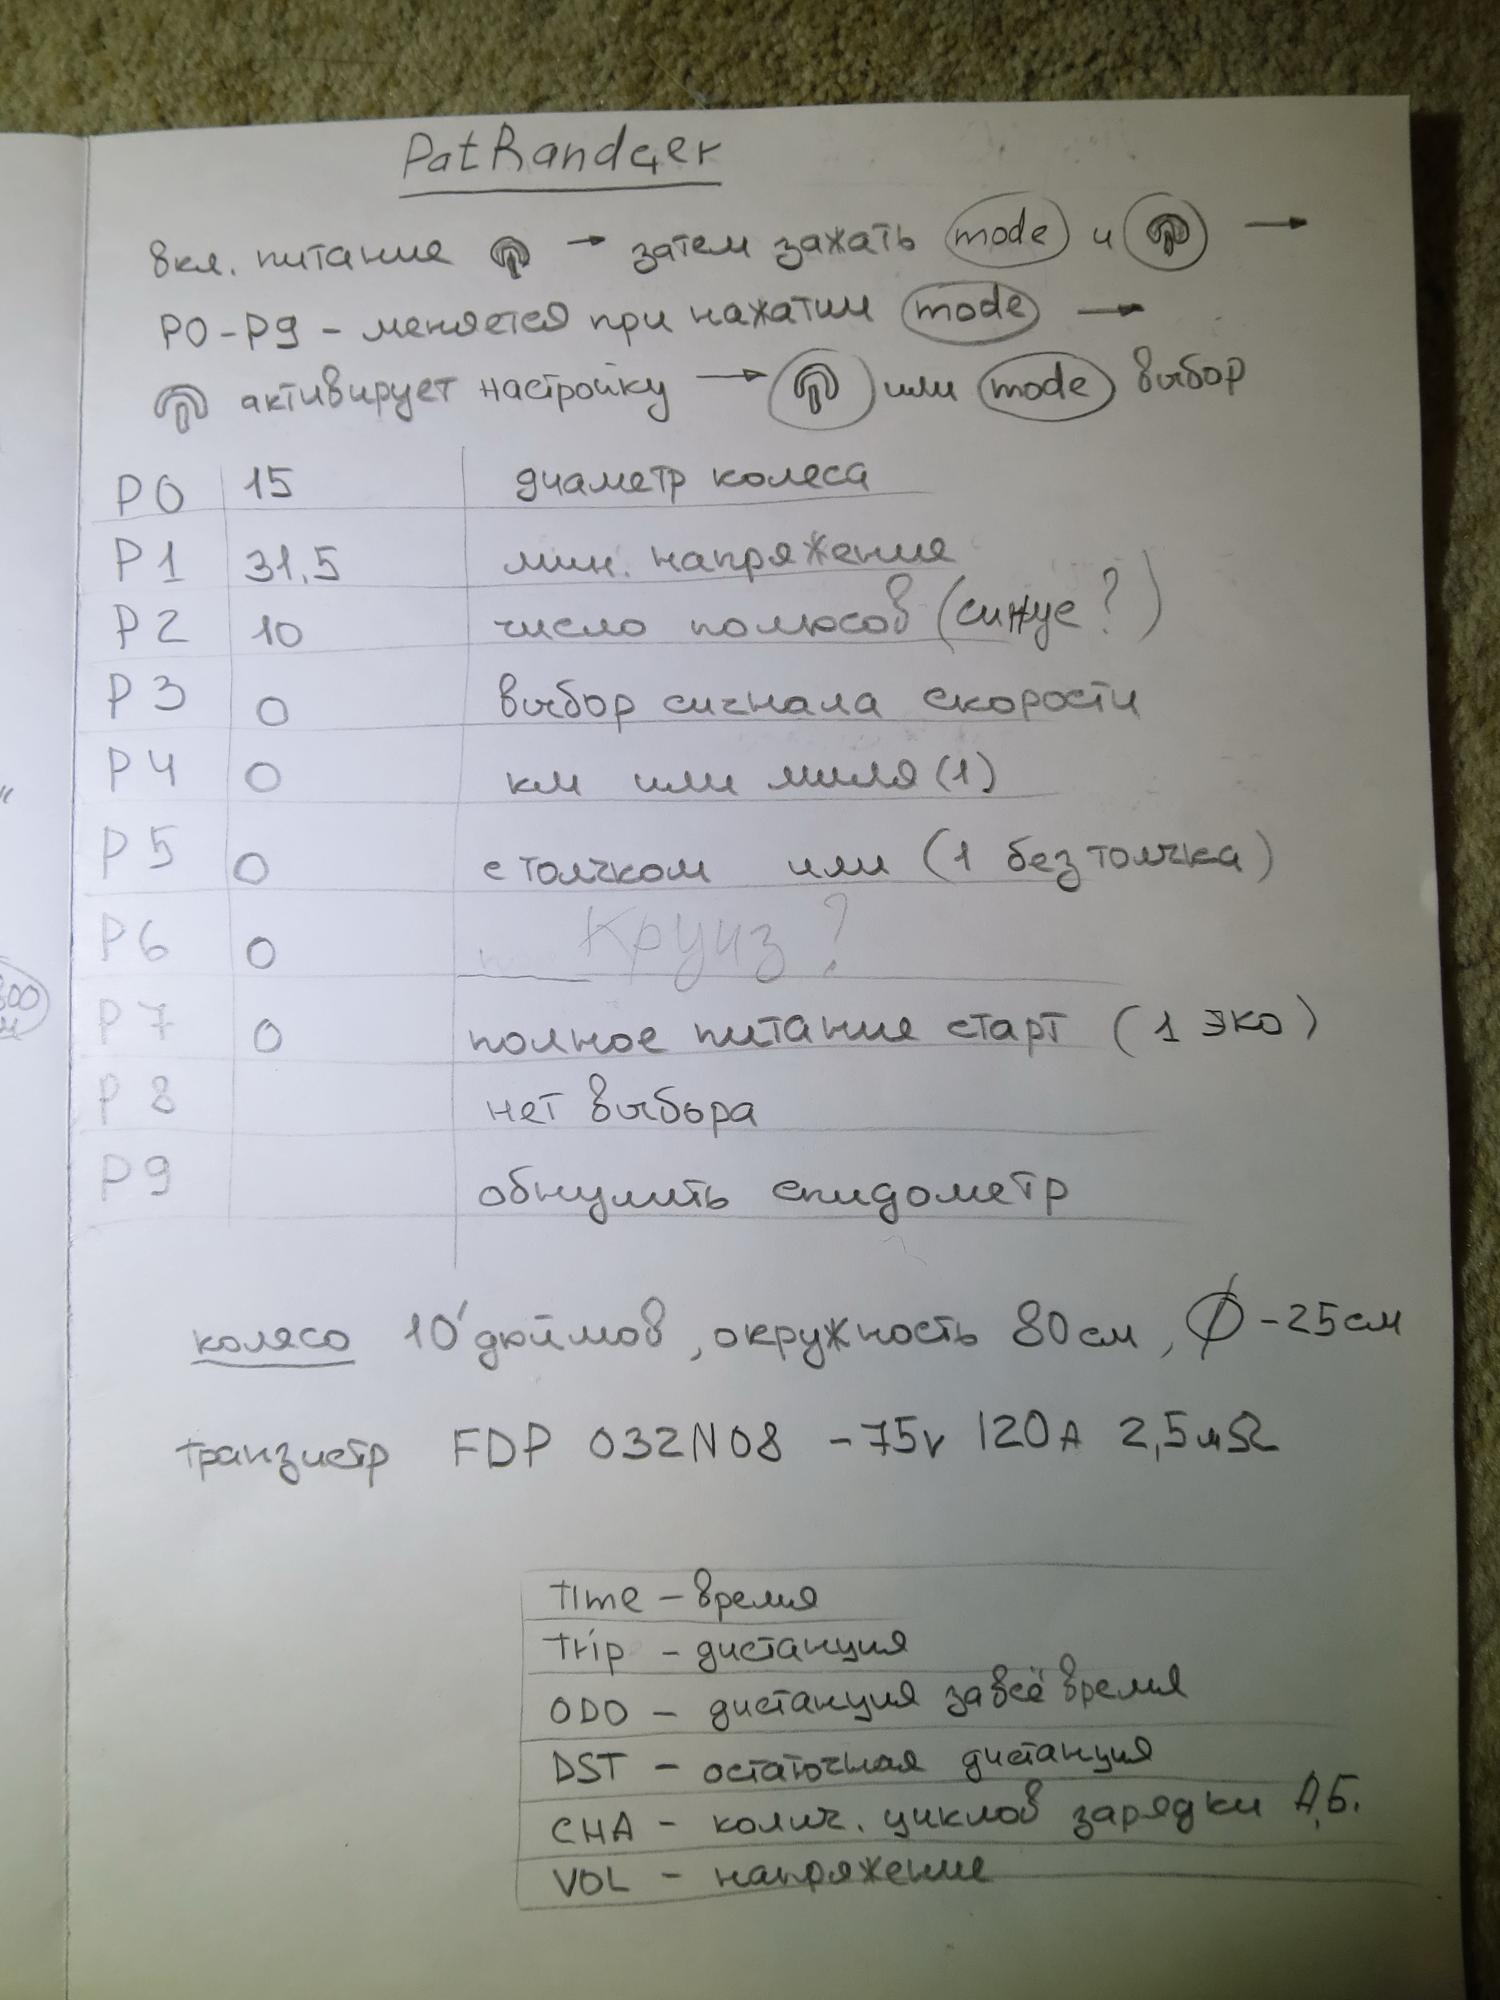 PatRandger
вкл. питание → затем зажать mode и →
P0-P9 - меняется при нажатии mode →
активирует настройку → или mode выбор
P0 15 диаметр колеса
P1 31,5 мин. напряжение
P2 10 число полюсов (синус?)
P3 0 выбор сигнала скорости
P4 0 км или миля (1)
P5 0 с толчком или (1 без толчка)
P6 0 Круиз?
P7 0 полное питание старт (1 эко)
P8 нет выбора
P9 обнулить спидометр
колясо 10' дюймов, окружность 80 см, Ø - 25 см
транзистр FDP 032N08 - 75v 120A 2,5мΩ
Time - время
Trip - дистанция
ODO - дистанция за всё время
DST - остаточная дистанция
CHA - колич. циклов зарядки А.Б.
VOL - напряжение